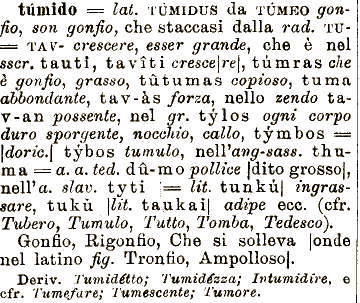 túmido = lat. TÚMIDUS da TÚMEO gon-
fio, son gonfio, che staccasi dalla rad. TU-
= TAV- crescere, esser grande, che è nel
sscr. tautî, tavîti cresce|re|, túmras che
è gonfio, grasso, tûtumas copioso, tuma
abbondante, tav-às forza, nello zendo ta-
v-an possente, nel gr. tỳlos ogni corpo
duro sporgente, nocchio, callo, tỳmbos =
|doric.| tỳbos tumulo, nell'ang-sass. thu-
ma = a. a. ted. dû-mo pollice |dito grosso|,
nell'a. slav. tyti |= lit. tunkú| ingras-
sare, tukù |lit. taukai| adipe ecc. (cfr.
Tubero, Tumulo, Tutto, Tomba, Tedesco).
Gonfio, Rigonfio, Che si solleva |onde
nel latino fig. Tronfio, Ampolloso|.
Deriv. Tumidétto; Tumidézza; Intumidire, e
cfr. Tumefare; Tumescente; Tumore.